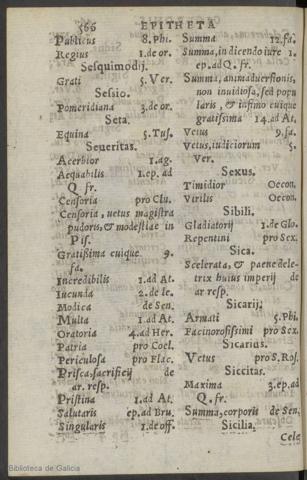 566 EPITHETA
Publicus 8. Phi.
Regius 1. de or.
Sesquimodij.
Grati 5. Ver.
Sessio.
Pomeridiana 3. de or.
Seta.
Equina 5. Tus.
Seueritas.
Acerbior 1. ag.
Aequabilis 1. ep. ad
Q. fr.
Censoria pro Clu.
Censoria, uetus magistra
pudoris, & modestiae in
Pis.
Gratissima cuique 9.
fa.
Incredibilis 1. ad At.
Iucunda 2. de le.
Modica de Sen.
Multa 1. ad At.
Oratoria 4. ad Her.
Patria pro Coel.
Periculosa pro Flac.
Prisca, sacrificij de
ar. resp.
Pristina 1. ad At.
Salutaris ep. ad Bru.
Singularis 1. de off.
Summa 12. fa.
Summa, in dicendo iure 1.
ep. ad Q. fr.
Summa, animaduersionis,
non inuidiosa, sed popu
laris, & infimo cuique
gratissima 14. ad At.
Vetus 9. fa.
Vetus, iudiciorum 5.
Ver.
Sexus.
Timidior Oecon.
Virilis Oecon.
Sibili.
Gladiatorij 1. de Glo.
Repentini pro Sex.
Sica.
Scelerata, & paene dele-
trix huius imperij de
ar resp.
Sicarij.
Armati 5. Phi.
Facinorosissimi pro Sex.
Sicarius.
Vetus pro S. Ros.
Siccitas.
Maxima 3. ep. ad
Q. fr.
Summa, corporis de Sen.
Sicilia.
Cele
Biblioteca de Galicia